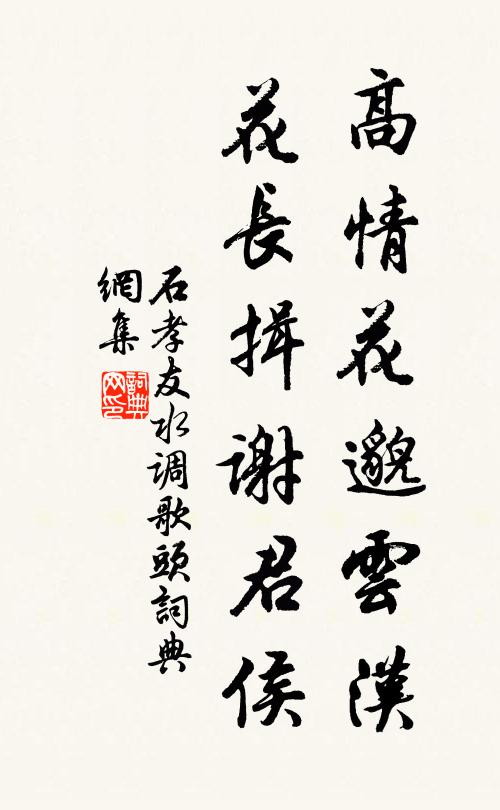 高情花邈雲漢
花長揖謝君侯
石孝友水调歌頭詞典
網集
詞典网印